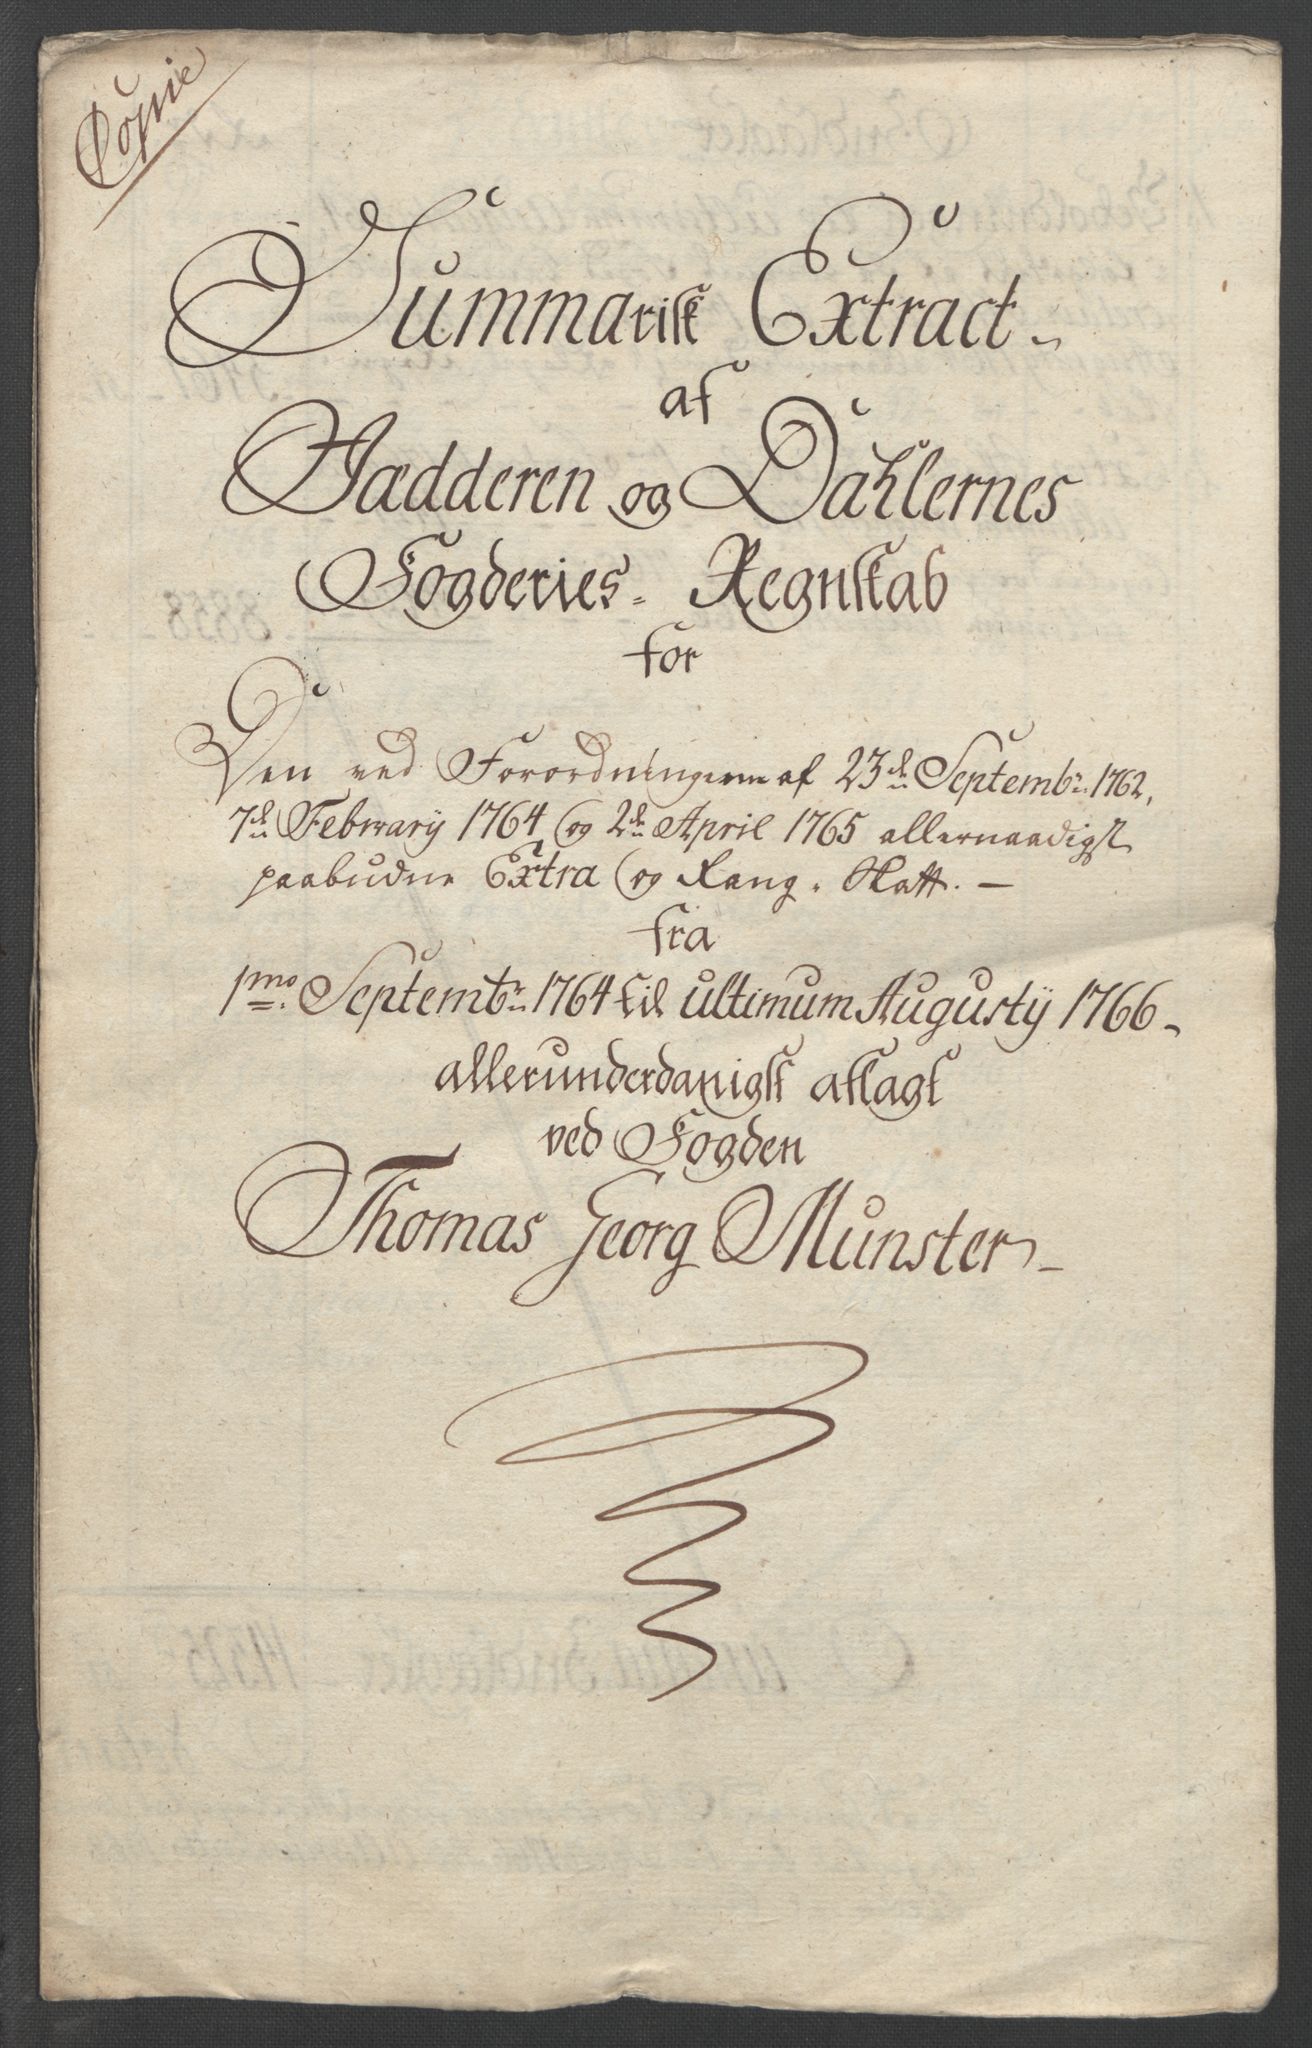 Copie
Summarisk Extract
af
Jædderen og Dahlernes
Fogderies Regnskab
for
Den ved Forordningerne af 23de Septembr: 1762,
7de February 1764 og 2de April 1765 allernaadigst
paabudne Extra og Rang-Skatt. –
fra
1mo Septembr 1764 til ultimum Augustÿ 1766 –
allerunderdanigst aflagt
ved Fogden
Thomas Georg Munster –